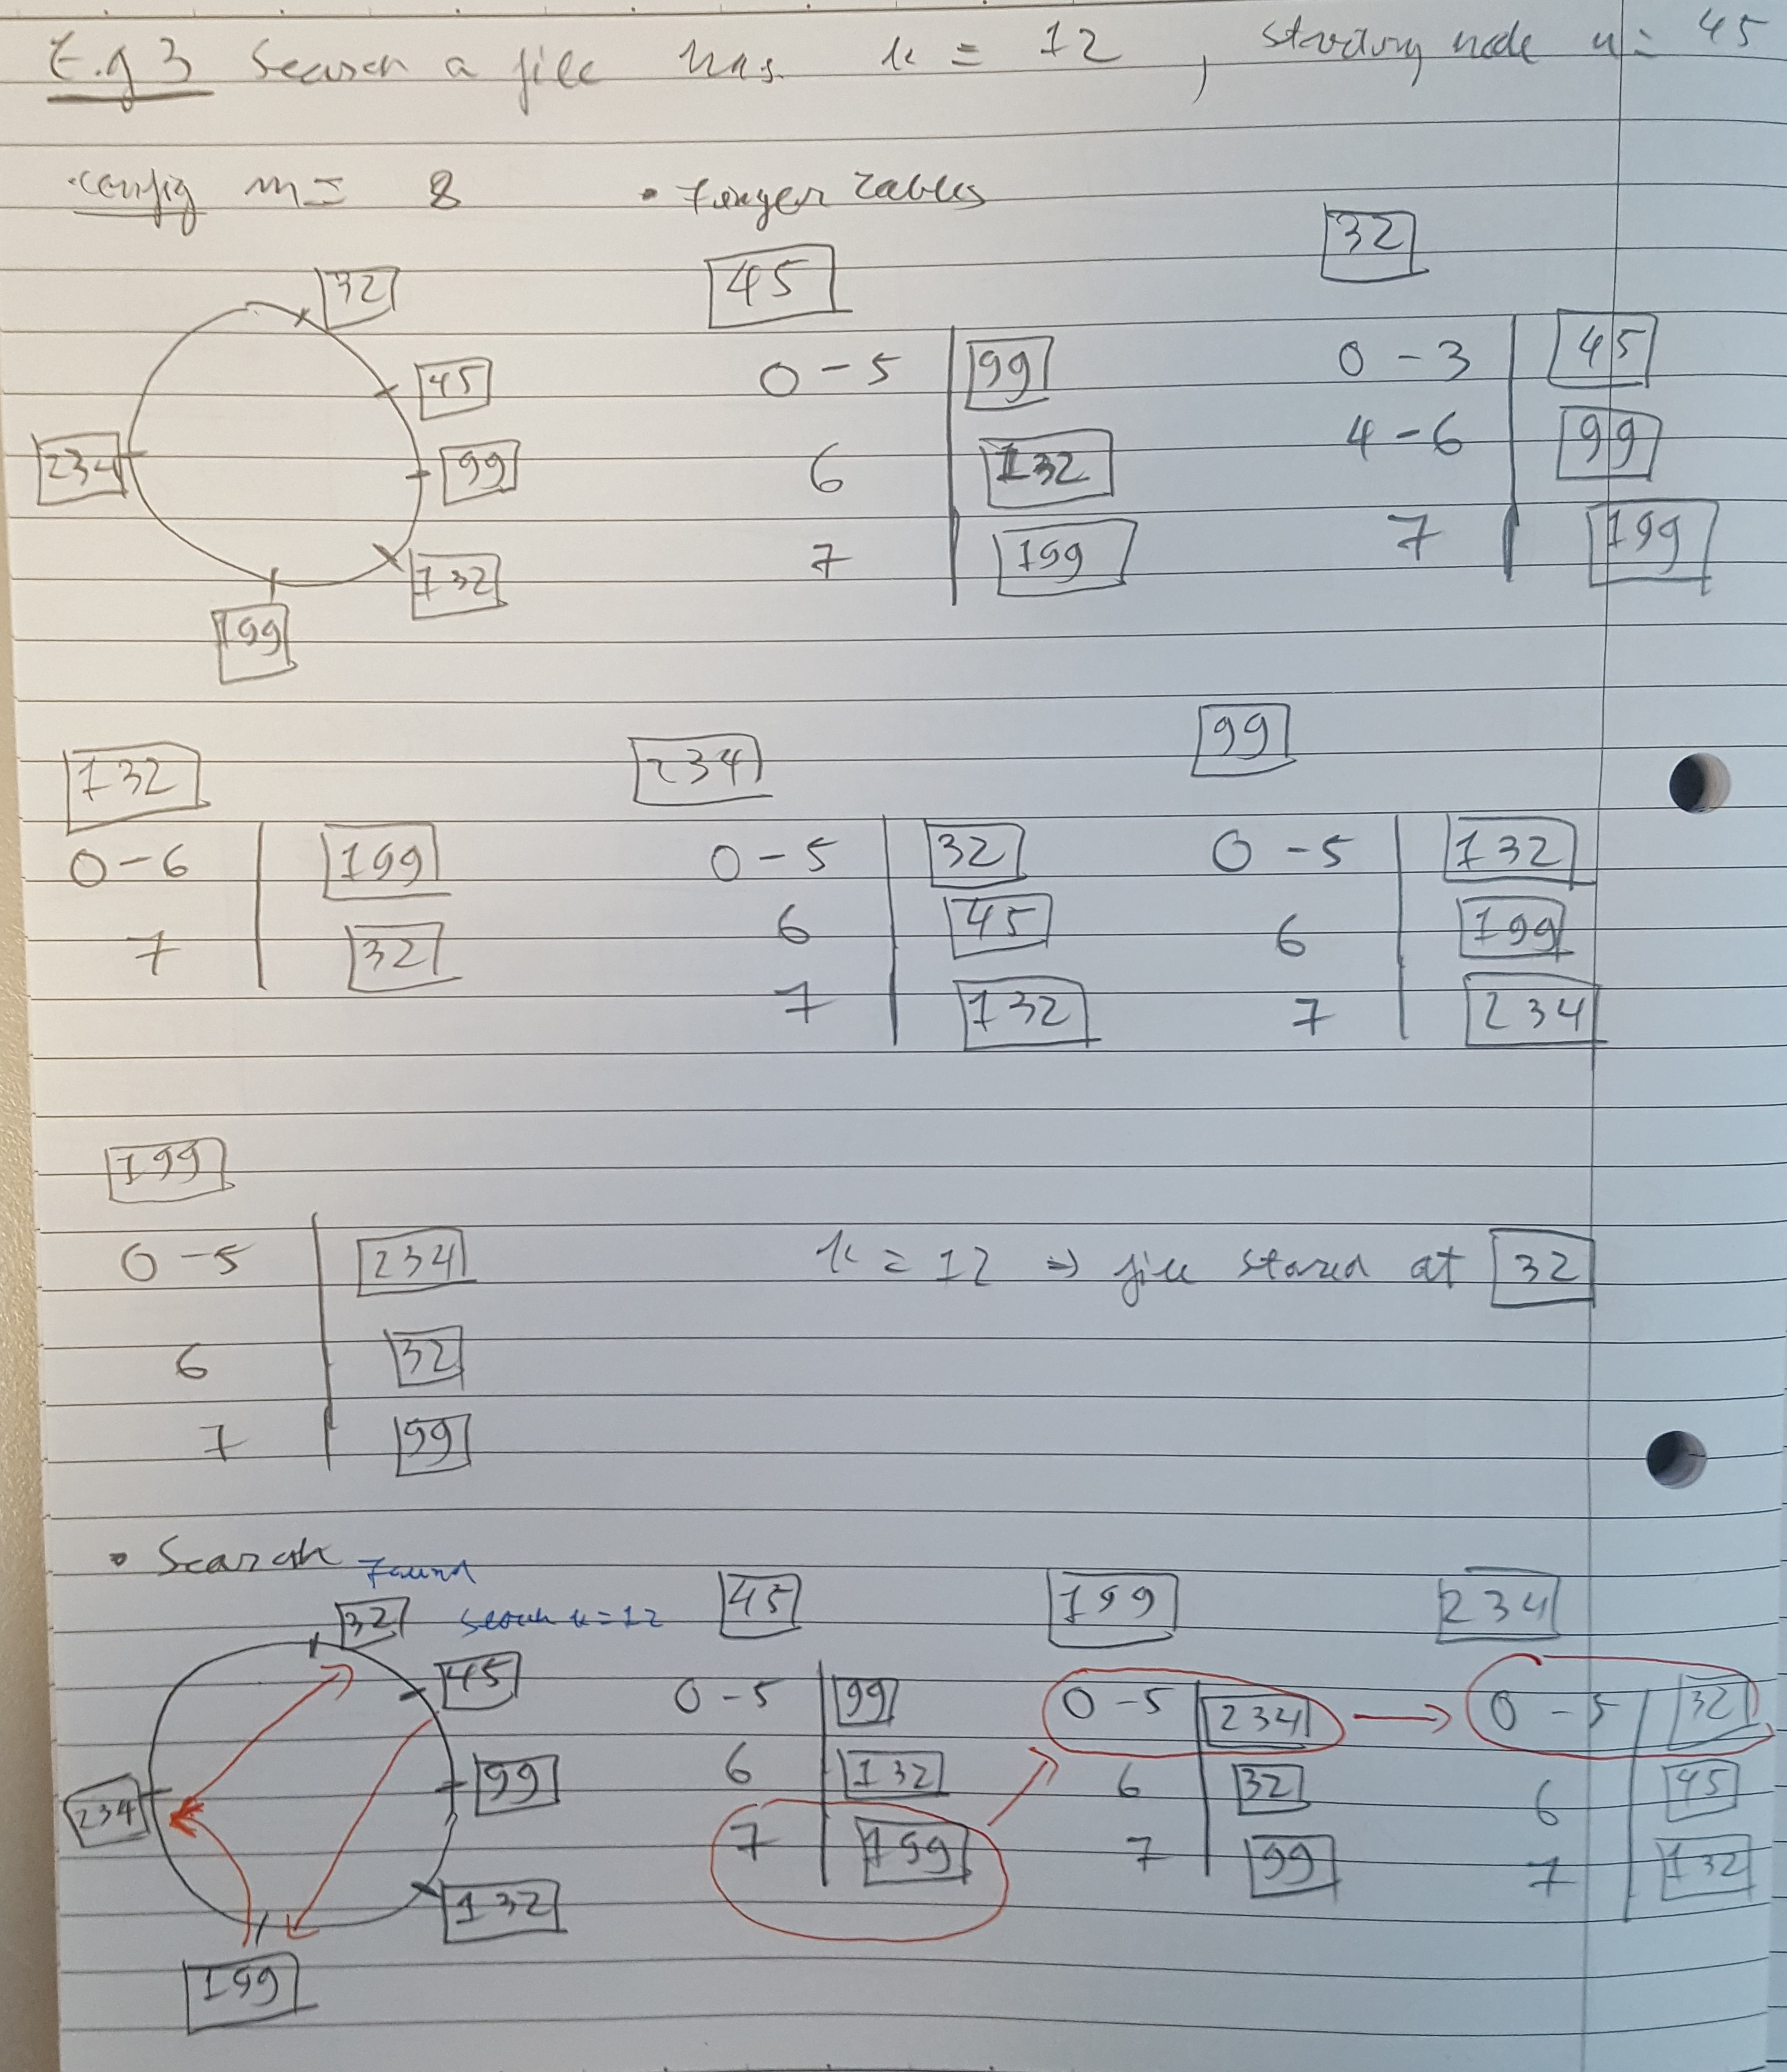 E.g 3 Search a file has k = 12 , starting node n = 45
• config m = 8 • Finger tables
32
45
99
132
199
234
45
0 - 5 99
6 132
7 199
32
0 - 3 45
4 - 6 99
7 199
132
0 - 6 199
7 32
234
0 - 5 32
6 45
7 132
99
0 - 5 132
6 199
7 234
199
0 - 5 234
6 32
7 99
k = 12 => file stored at 32
• Search
Found
32 search k = 12
45
99
132
199
234
45
0 - 5 99
6 132
7 199
199
0 - 5 234
6 32
7 99
234
0 - 5 32
6 45
7 132